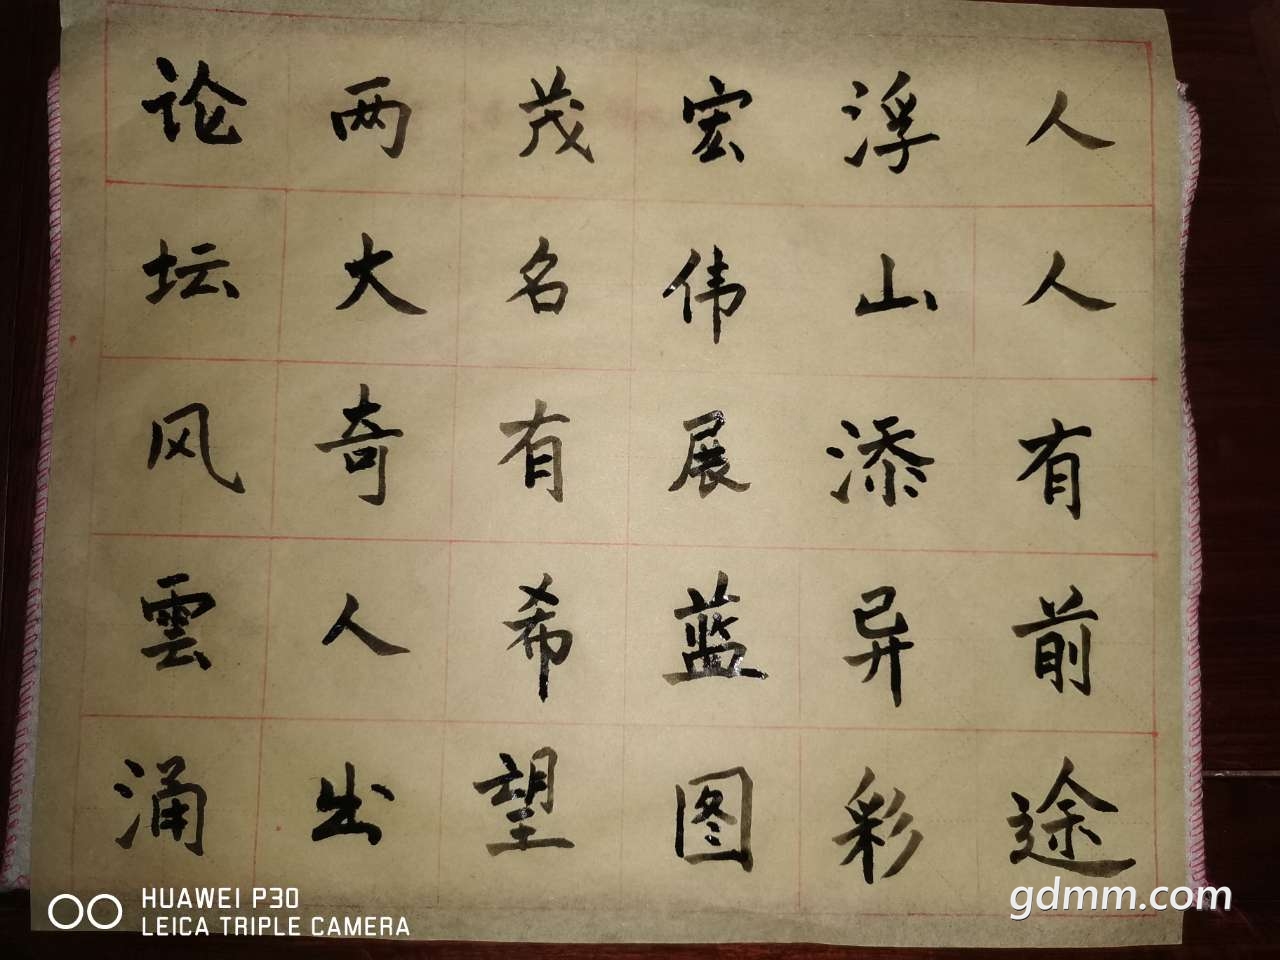 论坛风雲涌
两大奇人出
茂名有希望
宏伟展蓝图
浮山添异彩
人人有前途
HUAWEI P30
LEICA TRIPLE CAMERA
gdmm.com